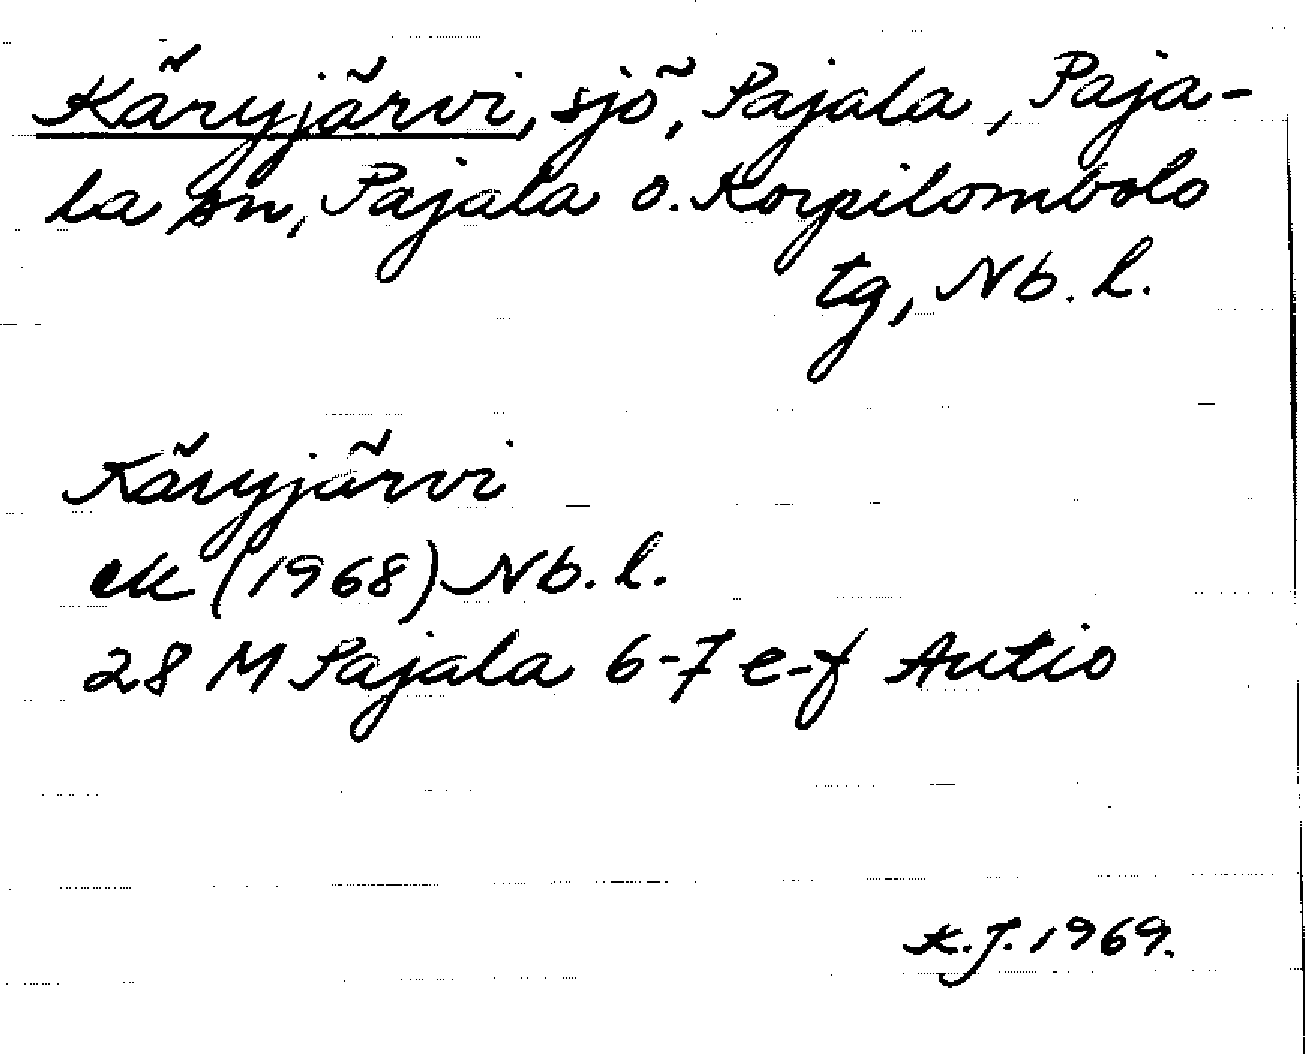 Käryjärvi, sjö, Pajala, Paja-
la sn, Pajala o. Korpilombolo
tg, Nb. l.
Käryjärvi
ek (1968) Nb. l.
28 M Pajala 6-7 e-f Autio
K.J. 1969.